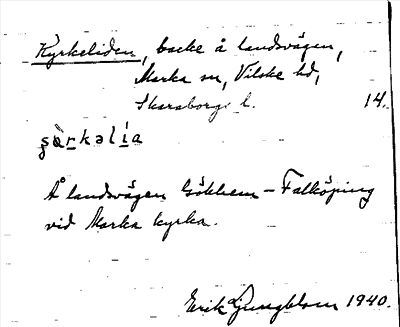 Kyrkeliden, backe å landsvägen,
Marka sn, Vilske hd,
Skaraborgs l. 14.
şɑ̀rkəlia
Å landsvägen Gökhem – Falköping
vid Marka kyrka.
Erik Ljungblom 1940.